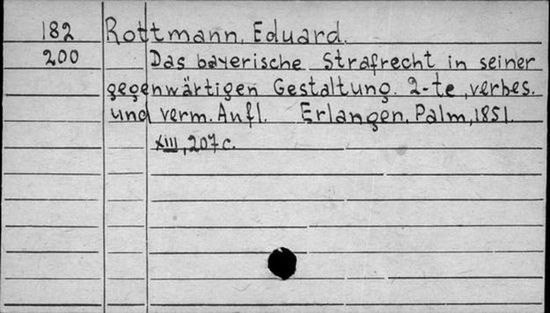 182 Rottmann, Eduard.
200 Das bayerische Strafrecht in seiner
gegenwärtigen Gestaltung. 2-te, verbes.
und verm. Aufl. Erlangen, Palm, 1851.
XIII, 207 c.